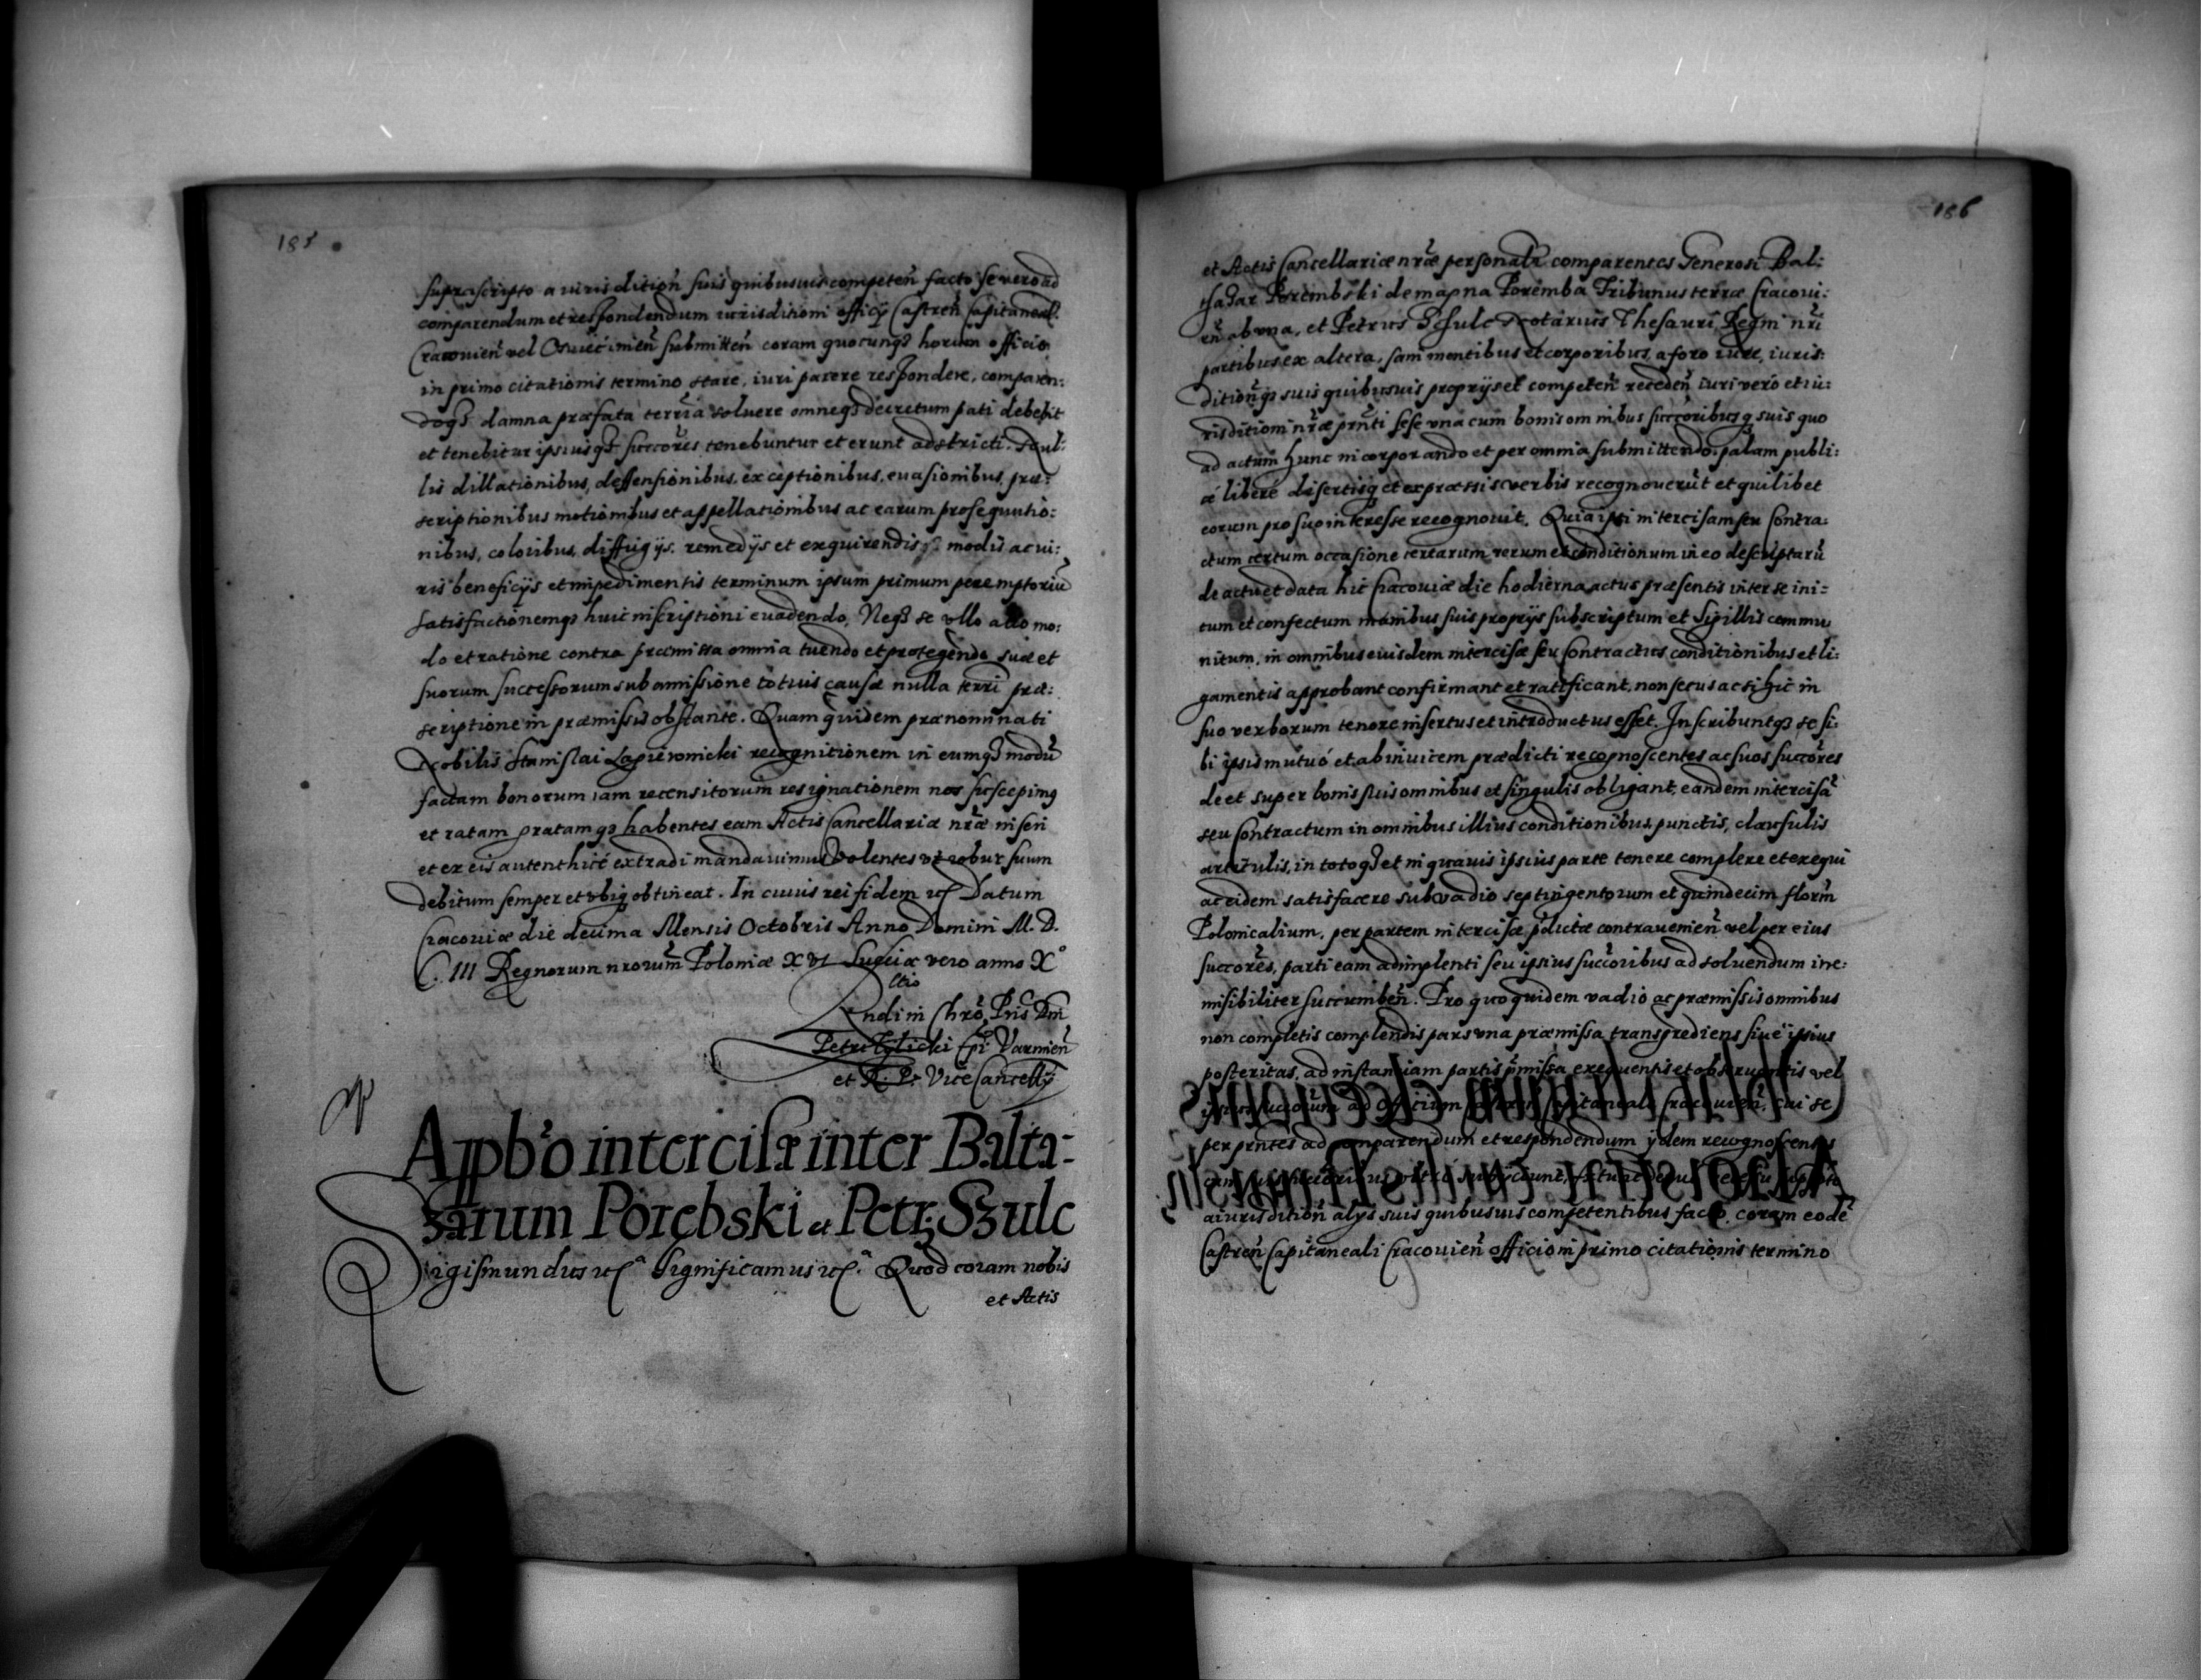 185
supra scripto a iurisdition̄ suis quibusuis competen̄ facto se vero ad
comparendum et respondendum iurisditioni officÿ Castren̄ Capitaneal.
Cracouien̄ vel Osuiecimen̄ submitten̄ coram quocunqȝ horum officio
in primo citationis termino stare, iuri parere respondere, comparen:
doqȝ damna præfata terrīa soluere omneqȝ decretum pati debebit
et tenebitur ipsiusqȝ succor̄es tenebuntur et erunt adstricti. Nul:
lis dillationibus, deffensionibus, exceptionibus, euasionibus, præ:
scriptionibus motionibus et appellationibus ac earum prosequutio:
nibus, coloribus, diffugÿs, remedÿs et exquirendis modis ac iu:
ris beneficÿs et impedimentis terminum ipsum primum peremptoriū
satisfactionemqȝ huic inscriptioni euadendo. Neqȝ se vllo alio mo:
do et ratione contra præmissa omnia tuendo et protegendo suæ et
suorum successorum sub amissione totius causæ nulla terri præ:
scriptione in præmissis obstante. Quam quidem prænominati
Nobilis Stanislai Lapienionicki recognitionem in eumqȝ modū
factam bonorum iam recensitorum resignationem nos suscepimꝯ
et ratam gratamqȝ habentes eam Actis Cancellariæ nr̄æ inseri
et ex eis autenthicé extradi mandauimus Volentes vt robur suum
debitum semper et vbiqȝ obtineat. In cuius rei fidem etc̄ Datum
Cracouiæ die decima Mensis Octobris Anno Domini M. D.
C. III Regnorum nrorum̄ Poloniæ XVI Sueciæ vero anno X°
ltio
Rndi in Chrō Pris Dni
Petri Tylicki Epi: Varmien̄
et R: P: Vice Cancellÿ
Appb̄o intercisæ inter Balta-
zarum Porębski et Petr: Szulc
Sigismundus etc̄ª Significamus etc̄ª. Quod coram nobis
et Actis
186
et Actis Cancellariæ nr̄æ personalr̄ comparentes Generosi Bal:
thasar Porembski de magna Poremba Tribunus terræ Cracoui:
en̄ ab vna, et Petrus Schulc Notarius Thesauri Regni nr̄i
partibus ex altera, sani mentibus et corporibus, a foro iure, iuris:
dition̄qȝ suis quibusuis proprÿs et competen̄ receden̄ iuri veró et iu:
risditioni nr̄æ prn̄ti sese vna cum bonis omnibus succōribusqȝ suis quo
ad actum hunc incorporando et per omnia submittendo, palam publi:
cé liberé disertisqȝ et expræssis verbis recognouerūt et quilibet
eorum pro suo interesse recognouit. Quia ipsi intercisam seu Contra:
ctum certum occasione certarum rerum et conditionum in eo descriptarū
de actu et data hic Cracouiæ die hodierna actus præsentis inter se ini:
tum et confectum manibus suis proprÿs subscriptum et Sigillis commu
nitum, in omnibus eiusdem intercisæ seu Contractus conditionibus et li:
gamentis approbant confirmant et ratificant, non secus ac si hic in
suo verborum tenore insertus et introductus esset. Inscribuntqȝ se si:
bi ipsis mutuó et ab inuicem prædicti recognoscentes ac suos succōres
de et super bonis suis omnibus et singulis obligant, eandem intercisā
seu Contractum in omnibus illius conditionibus, punctis, clausulis
articulis, in totoqȝ et in quauis ipsius parte tenere complere et exequi
ac eidem satisfacere sub vadio septingentorum et quindecim florm̄
Polonicalium, per partem intercisæ p̄dictæ contrauenien̄ vel per eius
succorēs, parti eam adimplenti seu ipsius succ̄oribus ad soluendum ire:
misibiliter succumben̄. Pro quo quidem vadio ac præmissis omnibus
non completis complendis pars vna præmissa transgrediens siue ipsius
posteritas, ad instantiam partis p̄missa exequentis et obseruantis vel
ad Officium Capitaneale Cracouien̄, cui se
per prn̄tes ad comparendum et respondendum ÿdem recognoscentes
a iurisdition̄ alÿs suis quibusuis competentibus facto, coram eodē
Castren̄ Capitaneali Cracouien̄ officio in primo citationis termino